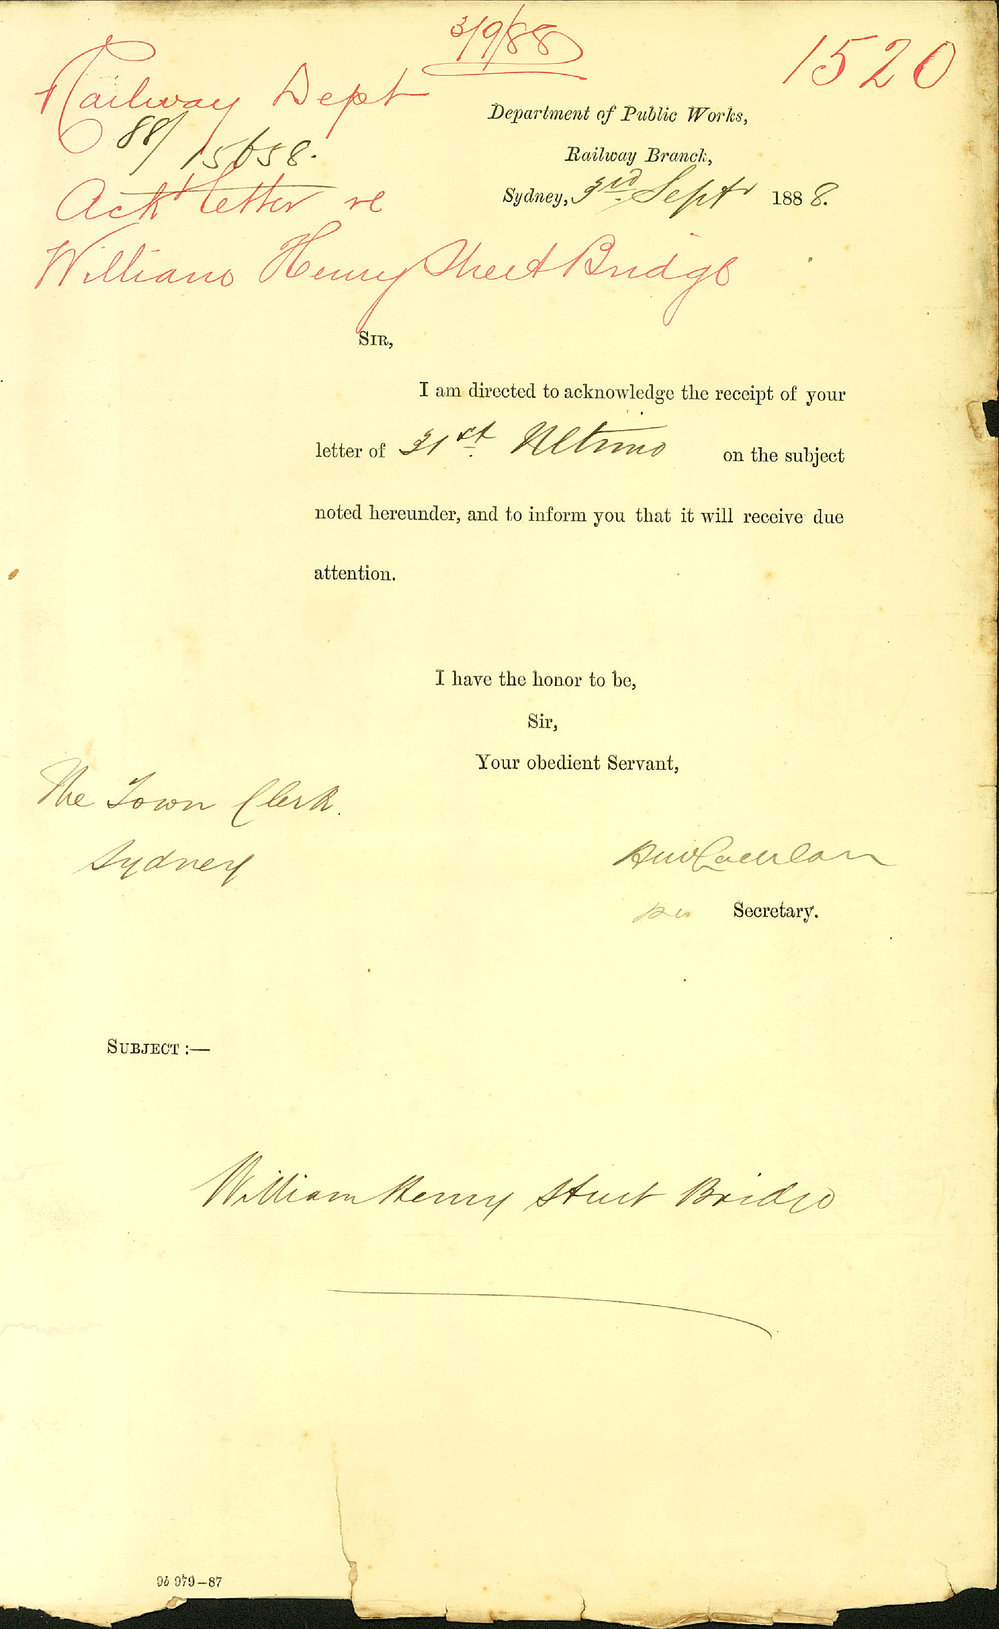 3/9/88
1520
Railway Dept
Department of Public Works,
88/15658.
Railway Branch,
Ackt letter re
Sydney, 3rd Septr 1888.
William Henry Street Bridge
SIR,
I am directed to acknowledge the receipt of your
letter of 31st Ultimo on the subject
noted hereunder, and to inform you that it will receive due
attention.
I have the honor to be,
Sir,
Your obedient Servant,
The Town Clerk.
Sydney
Secretary.
SUBJECT :—
William Henry Street Bridge
9b 979—87